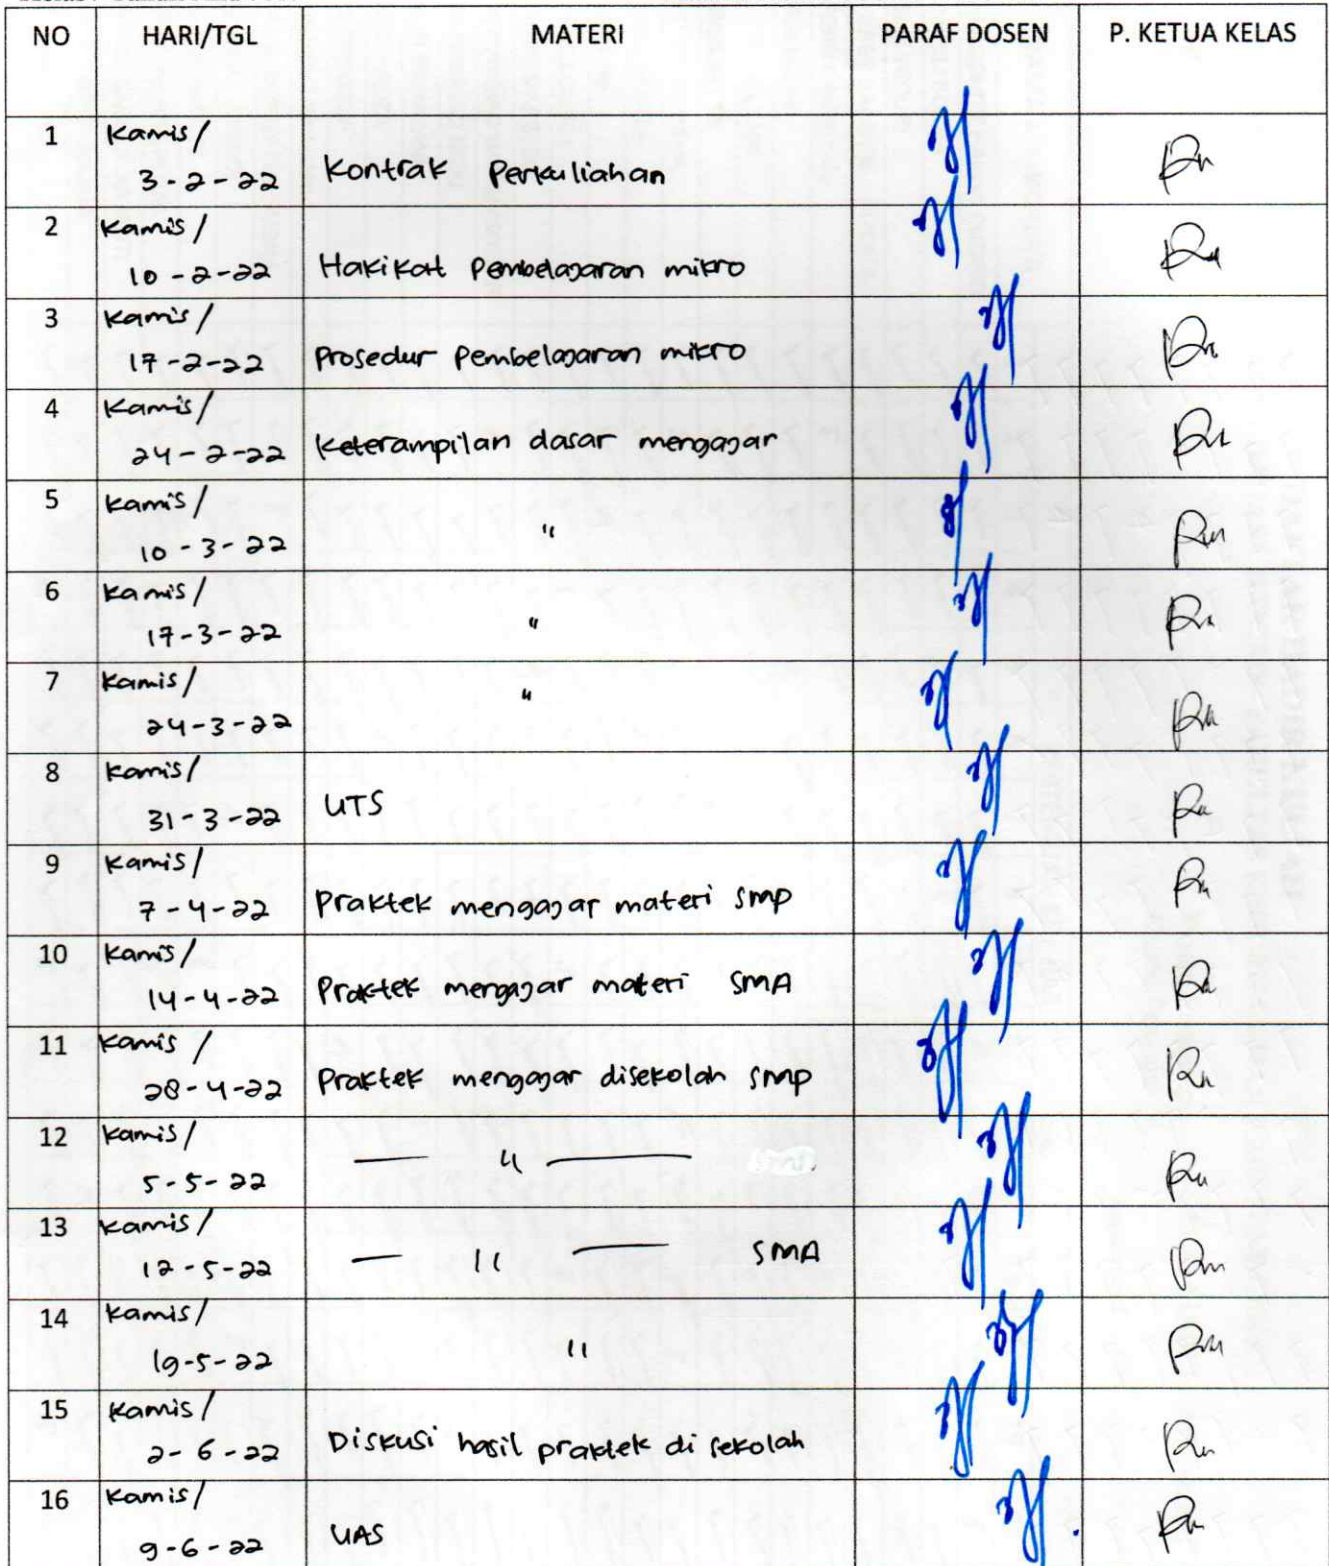 NO HARI/TGL MATERI PARAF DOSEN P. KETUA KELAS
1 Kamis/
3-2-22 Kontrak Perkuliahan
2 Kamis/
10-2-22 Hakikat Pembelajaran mikro
3 Kamis/
17-2-22 Prosedur Pembelajaran mikro
4 Kamis/
24-2-22 Keterampilan dasar mengajar
5 Kamis/
10-3-22 "
6 Kamis/
17-3-22 "
7 Kamis/
24-3-22 "
8 Kamis/
31-3-22 UTS
9 Kamis/
7-4-22 Praktek mengajar materi SMP
10 Kamis/
14-4-22 Praktek mengajar materi SMA
11 Kamis/
28-4-22 Praktek mengajar disekolah SMP
12 Kamis/
5-5-22 — " —
13 Kamis/
12-5-22 — " — SMA
14 Kamis/
19-5-22 "
15 Kamis/
2-6-22 Diskusi hasil praktek di sekolah
16 Kamis/
9-6-22 UAS